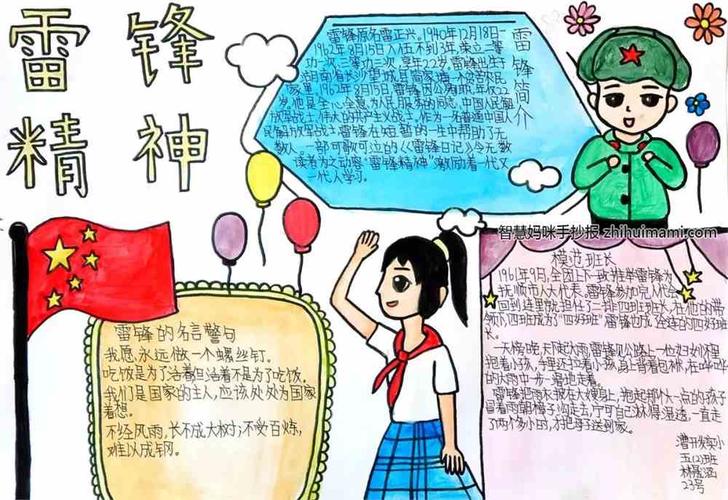 雷锋
精神
雷锋简介
雷锋原名雷正兴。1940年12月18日-
1962年8月15日入伍不到3年,荣立二等
功一次,三等功三次,享年22岁。雷锋出生于
湖南省长沙望城县简家塘一个贫农
家里,1962年8月15日雷锋因公殉职,年仅22
岁。他是全心全意为人民服务的同志,中国人民解
放军战士,伟大的共产主义战士,作为一名普通中国人
民解放军战士雷锋在短暂的一生中帮助了无
数人,一部可歌可泣的《雷锋日记》令无数
读者为之动容“雷锋精神”激励着一代又
一代人学习。
智慧妈咪手抄报 zhihuimami.com
模范班长
1961年9月,全团上下一致推举雷锋为
抚顺市人大代表。雷锋参加完人代会
回到连里就担任了二排四班班长,在他的带
领下,四班成为“四好班”雷锋也成全连的四好班长
一天傍晚,天下起大雨雷锋见公路上一位妇女怀里
抱着小孩,手里还拉着小孩,身上背着包袱,在哗哗
的大雨中一步一滑地走着。
雷锋把雨衣披在大嫂身上,抱起那个大一点的孩子
冒着雨朝樟子沟走去,宁可自己淋得湿透,一直走
了两个多小时,才把母子送到家。
雷锋的名言警句
我愿永远做一个螺丝钉。
吃饭是为了活着但活着不是为了吃饭。
我们是国家的主人,应该处处为国家
着想。
不经风雨,长不成大树;不受百炼,
难以成钢。
五(2)班
23号